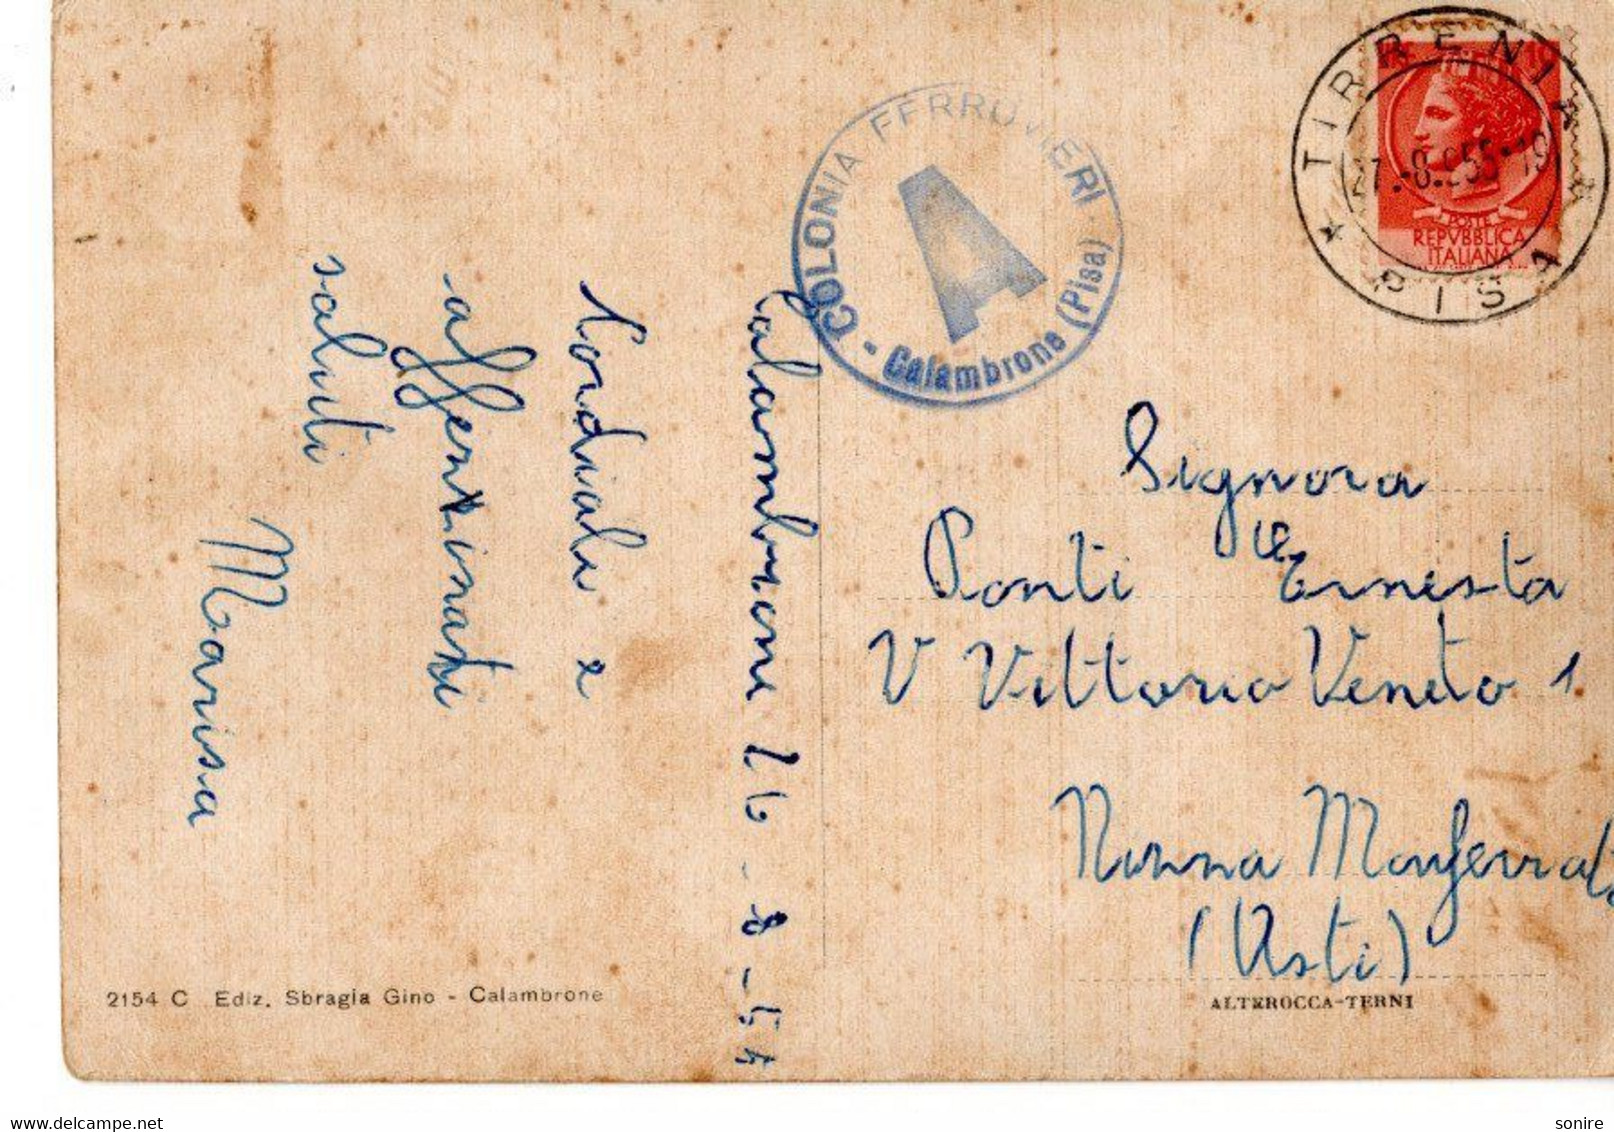 Calambrone 26-8-55
Cordiali e
affezzionati
saluti
Marisa
2154 C Ediz. Sbragia Gino - Calambrone
COLONIA FERROVIERI
A
- Calambrone (Pisa)
TIRRENIA
27.-8.955-19
★ PISA
POSTE
REPVBBLICA
ITALIANA
Signora
Ponti Ernesta
V Vittorio Veneto 1
Monferrato
(Asti)
ALTEROCCA-TERNI
sonire